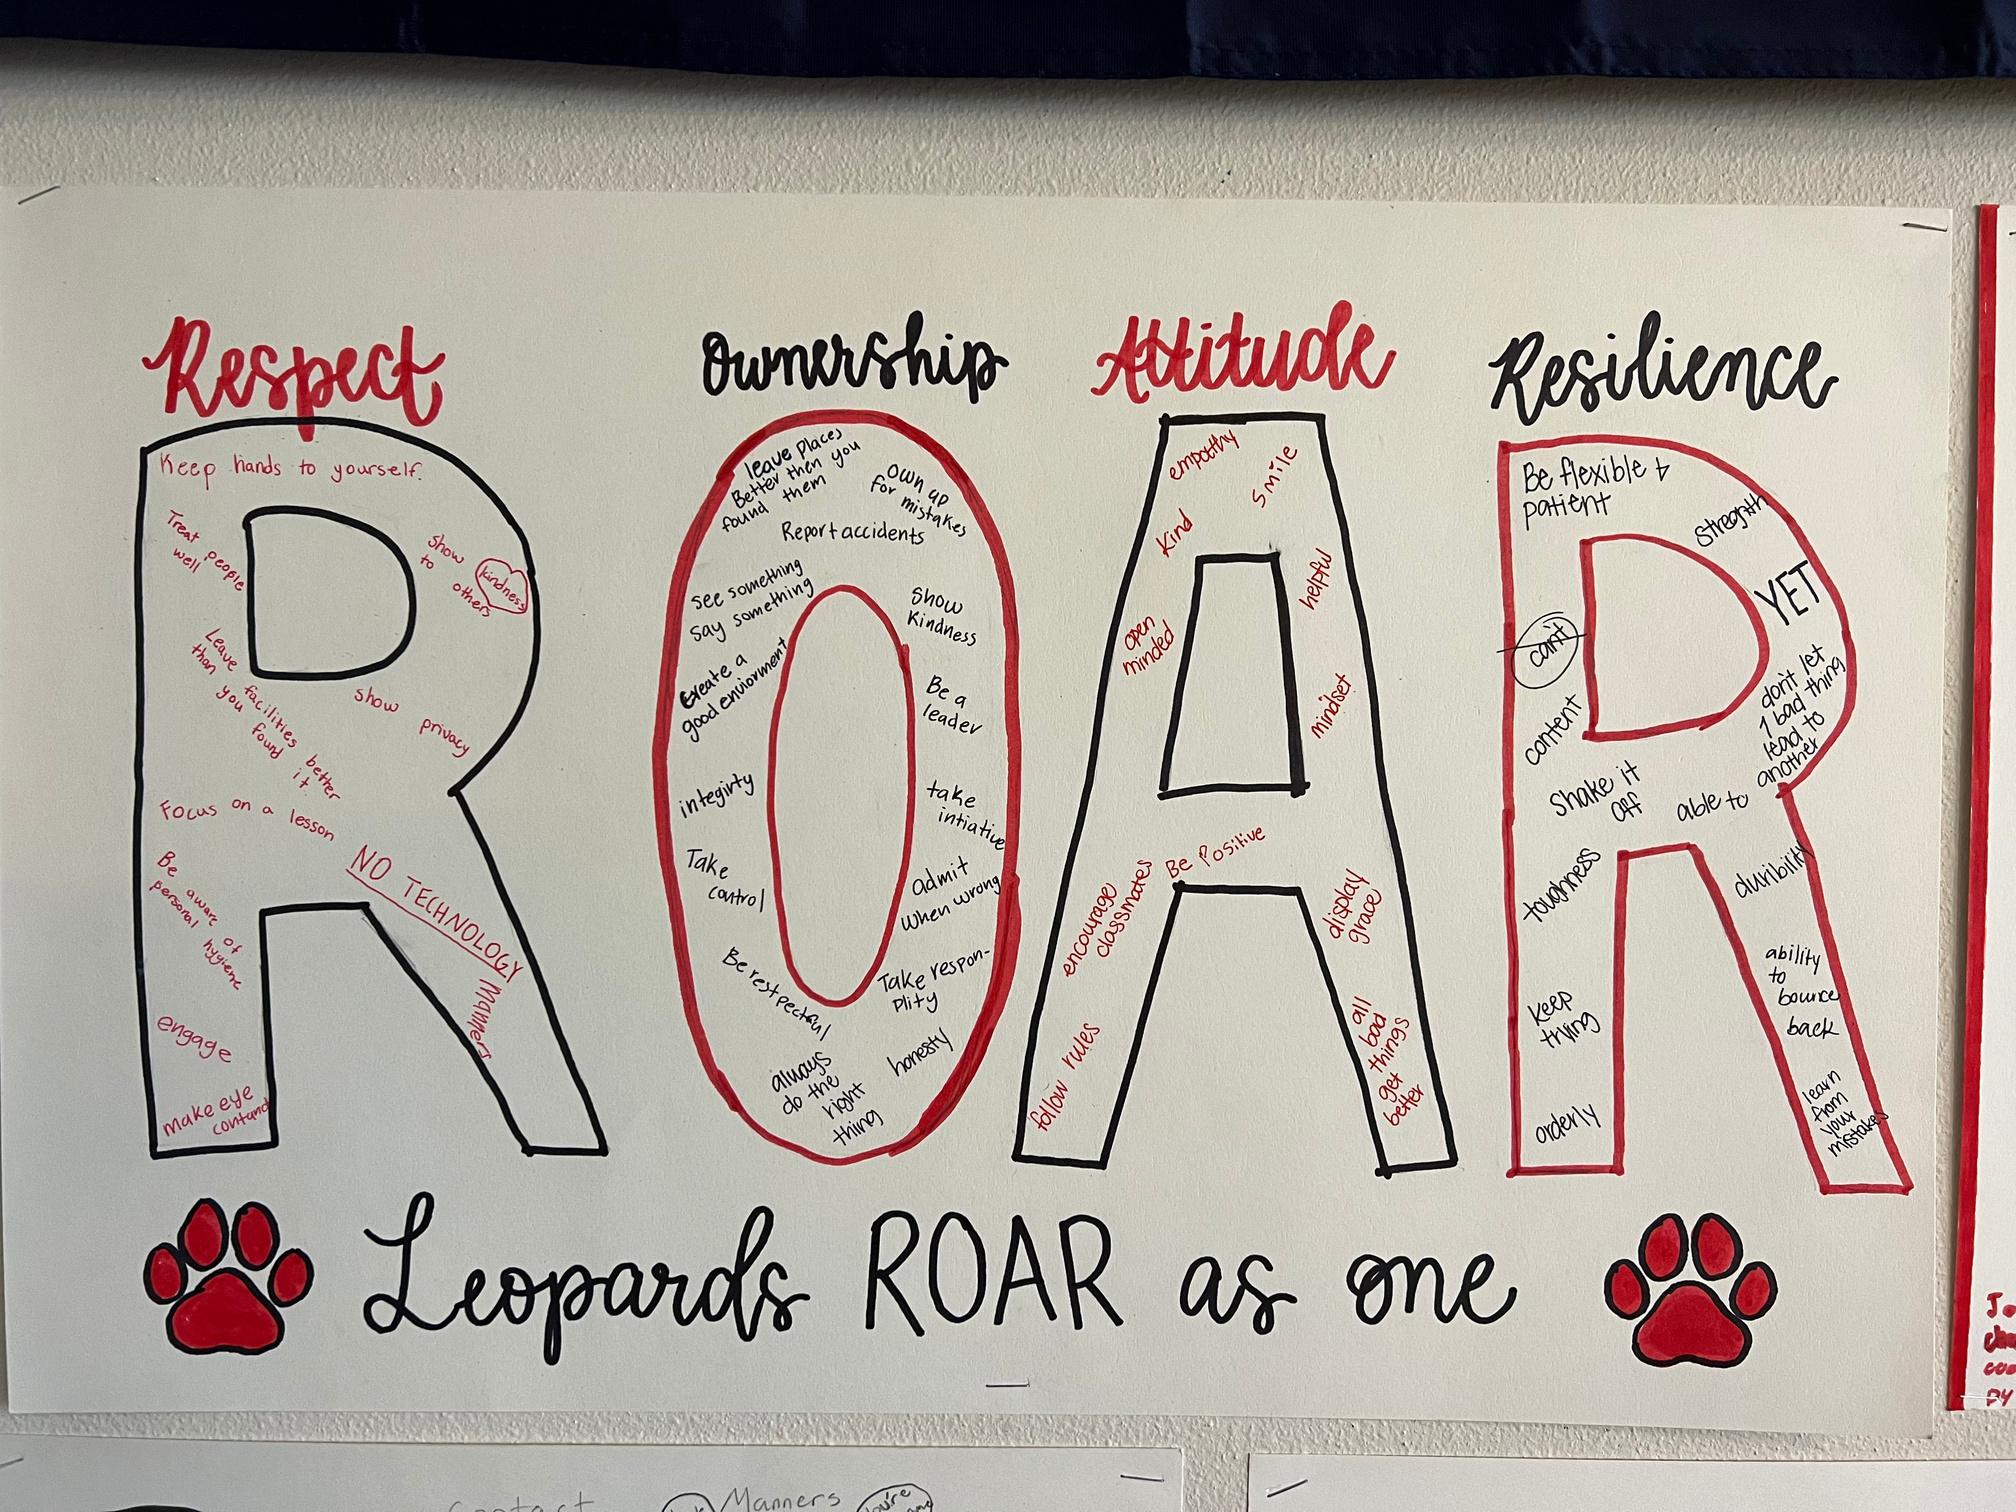 Respect
Keep hands to yourself.
Treat people
well
show
to
kindness
others
Leave facilities better
than you found it.
show privacy
Focus on a lesson
NO TECHNOLOGY
Be aware of
personal hygiene
Manners
engage
make eye
contand
Ownership
leave places
Better then you
found them
Own up
for mistakes
Report accidents
see something
say something
show
Kindness
Create a
good enviorment
Be a
leader
integirty
take
intiative
Take
control
admit
when wrong
Be restpectful
Take respon-
plity
always
do the
right
thing
honesty
Attitude
empathy
smile
Kind
helpful
open
minded
mindset
Be Positive
encourage
classmates
display
grace
follow rules
all
bad
things
get
better
Resilience
Be flexible &
patient
strength
YET
can't
don't let
1 bad thing
lead to
another
content
shake it
off
able to
toughness
duribility
ability
to
bounce
back
keep
trying
learn
from
your
mistakes
orderly
Leopards ROAR as one
Manners